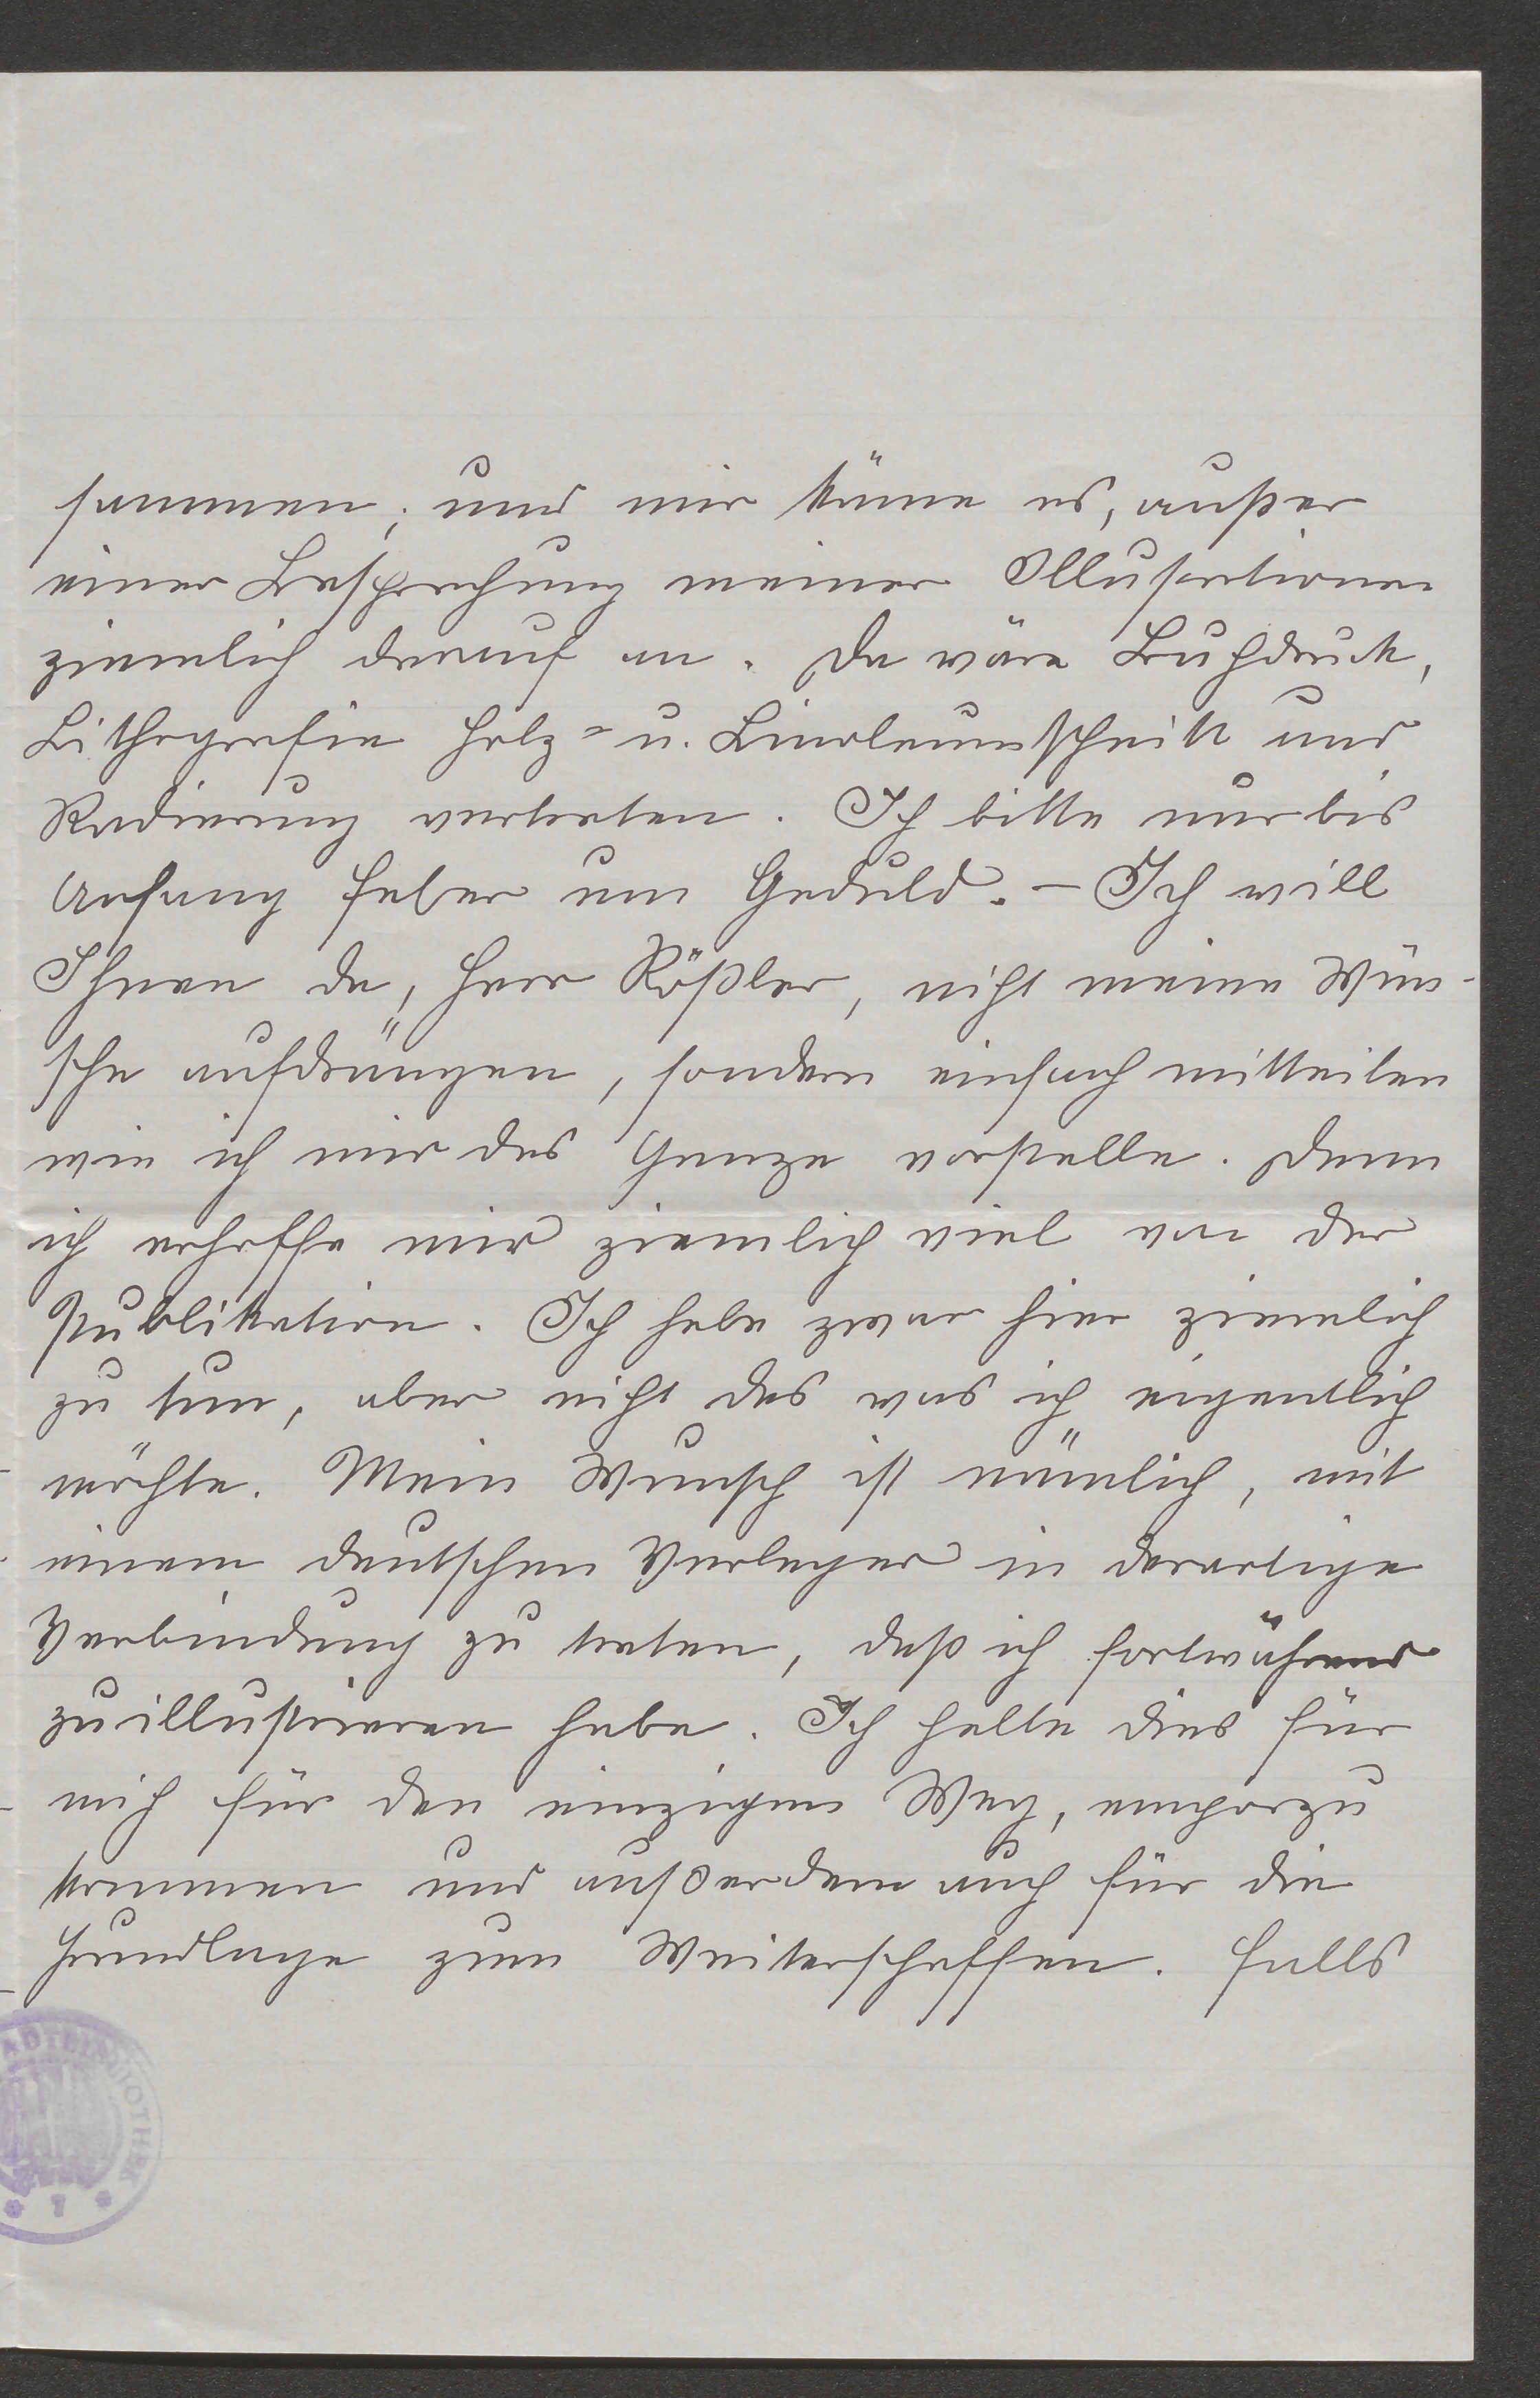 sammen; und mir käme es, außer
einer Besprechung meiner Illustrationen
ziemlich darauf an. Da wäre Buchdruck,
Lithografie Holz= u. Linoleumschnitt und
Radierung vertreten. Ich bitte nur bis
Anfang Feber um Geduld. – Ich will
Ihnen da, Herr Rößler, nicht meine Wün-
sche aufdrängen, sondern einfach mitteilen
wie ich mir das Ganze vorstelle. Denn
ich erhoffe mir ziemlich viel von der
Publikation. Ich habe zwar hier ziemlich
zu tun, aber nicht das was ich eigentlich
möchte. Mein Wunsch ist nämlich, mit
einem deutschen Verleger in derartige
Verbindung zu treten, daß ich fortwährend
zu illustrieren habe. Ich halte dies für
mich für den einzigen Weg, emporzu
kommen und außerdem auch für die
Grundlage zum Weiterschaffen. Falls
ADTBIBLIOTHEK
* 7 *